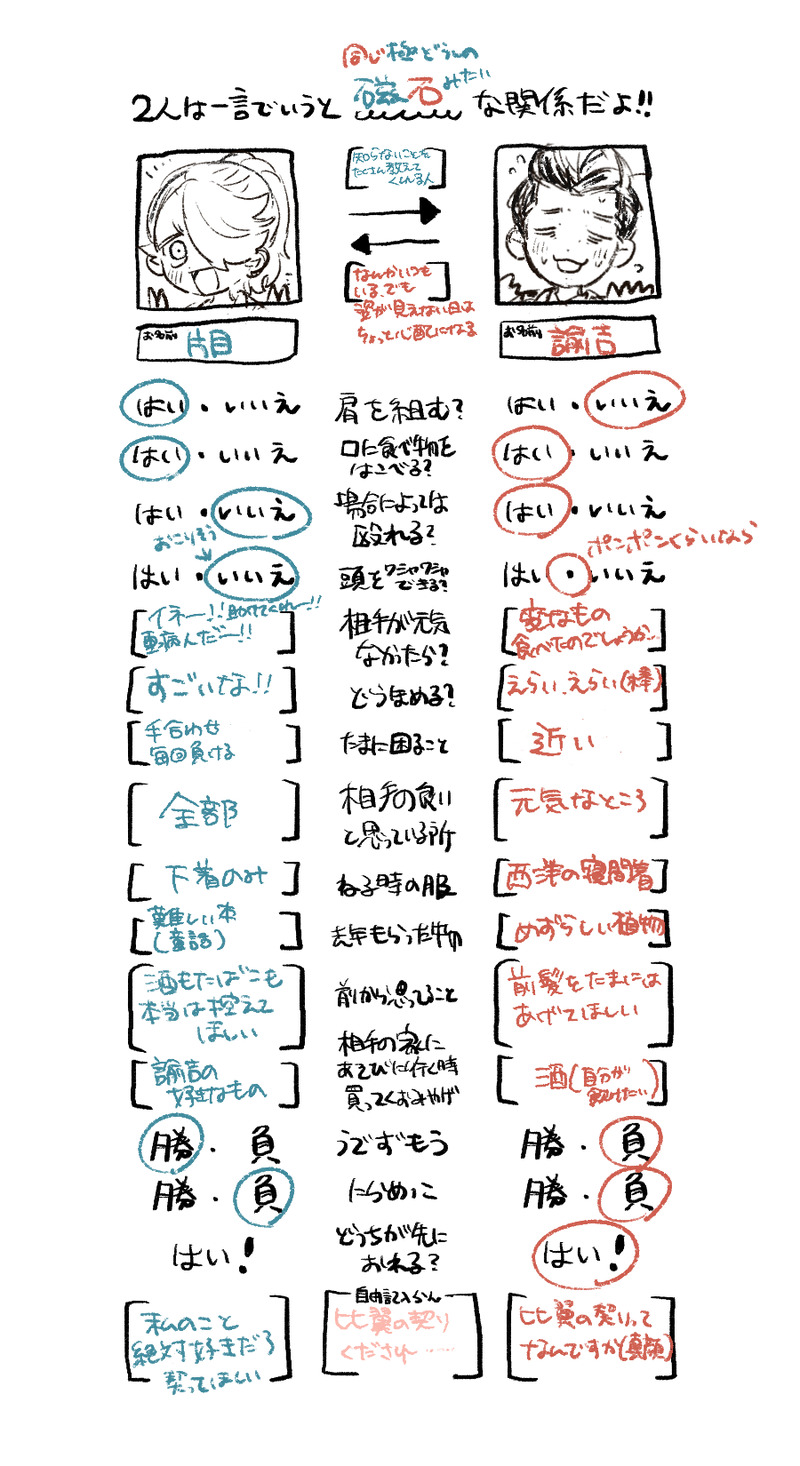 同じ極どうしの
2人は一言でいうと 磁石みたい な関係だよ!!
知らないことを
たくさん教えて
くれる人
なんかいつも
いる。でも
姿が見えない日は
ちょっと心配になる
お名前 片目
お名前 諭吉
はい・いいえ 肩を組む? はい・いいえ
はい・いいえ 口に食べ物を
はこべる? はい・いいえ
はい・いいえ 場合によっては
殴れる? はい・いいえ
おこりそう
ポンポンくらいなら
はい・いいえ 頭をワシャワシャ
できる? はい・いいえ
イネー!!助けてくれー!!
重病んだー!!
相手が元気
なかったら?
変なもの
食べたのでしょうか…
すごいな!! どうほめる? えらい、えらい(棒)
手合わせ
毎回負ける
たまに困ること
近い
全部
相手の良い
と思っている所
元気なところ
下着のみ ねる時の服 西洋の寝間着
難しい本
(童話)
去年もらった物
めずらしい植物
酒もたばこも
本当は控えて
ほしい
前から思ってること
前髪をたまには
あげてほしい
諭吉の
好きなもの
相手の家に
あそびに行く時
買ってくおみやげ
酒(自分が
飲みたい)
勝・負 うでずもう 勝・負
勝・負 にらめっこ 勝・負
はい! どっちが先に
おれる? はい!
自由記入らん
私のこと
絶対好きだろ
契ってほしい
比翼の契り
ください……
比翼の契りって
なんですか(真顔)